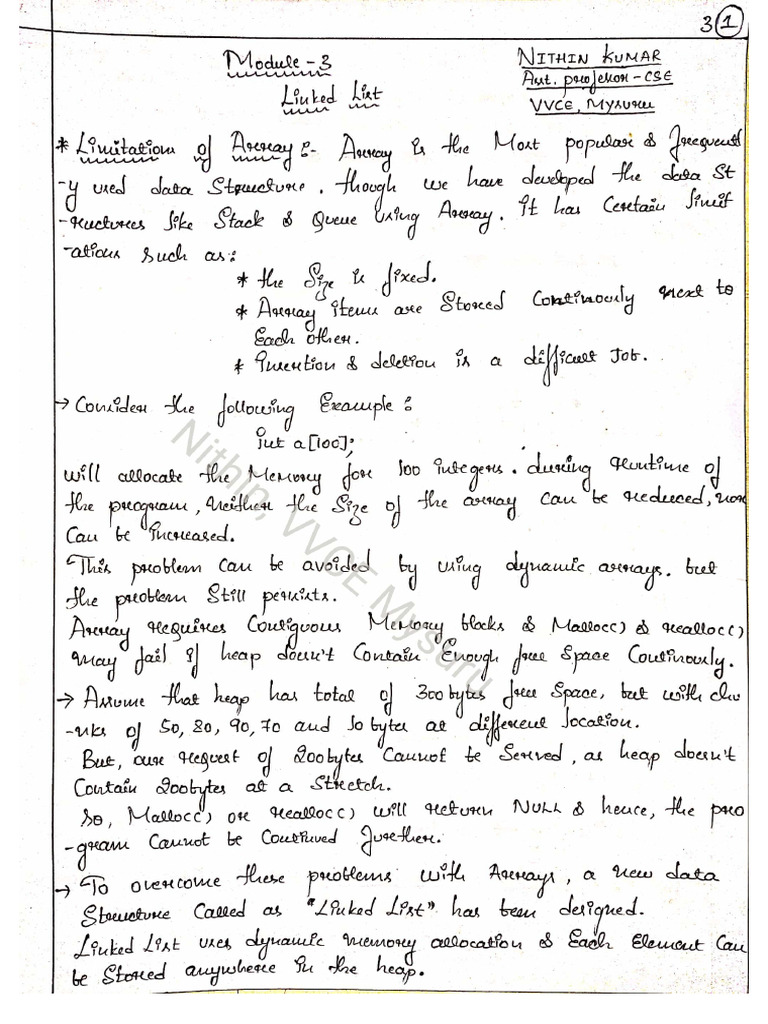 3 1
Module - 3
NITHIN KUMAR
Linked List
Asst. professor - CSE
VVCE, Mysuru
* Limitations of Array :- Array is the Most popular & frequent
-y used data Structure. though we have developed the data St
-ructures like Stack & Queue Using Array. It has Certain limit
-ations such as:
* the Size is fixed.
* Array items are Stored Continously next to
Each other.
* Insertion & deletion is a difficult Job.
→ Consider the following Example :
int a[100];
will allocate the Memory for 100 integers. during runtime of
the program, neither the Size of the array can be reduced, nor
Can be Increased.
This problem can be avoided by using dynamic arrays. but
the problem Still persists.
Array requires Contiguous Memory blocks & Malloc() & realloc()
may fail if heap doesn't Contain Enough free Space Continously.
→ Assume that heap has total of 300 bytes free Space, but with chu
-nks of 50, 80, 90, 70 and 10 bytes at different location.
But, our request of 200bytes Cannot be Served, as heap doesn't
Contain 200bytes at a Stretch.
So, Malloc() or realloc() will return NULL & hence, the pro
-gram Cannot be Continued further.
→ To overcome these problems with Arrays, a new data
Structure Called as "Linked List" has been designed.
Linked List uses dynamic memory allocation & Each Element Can
be Stored anywhere in the heap.
Nithin, VVCE Mysuru